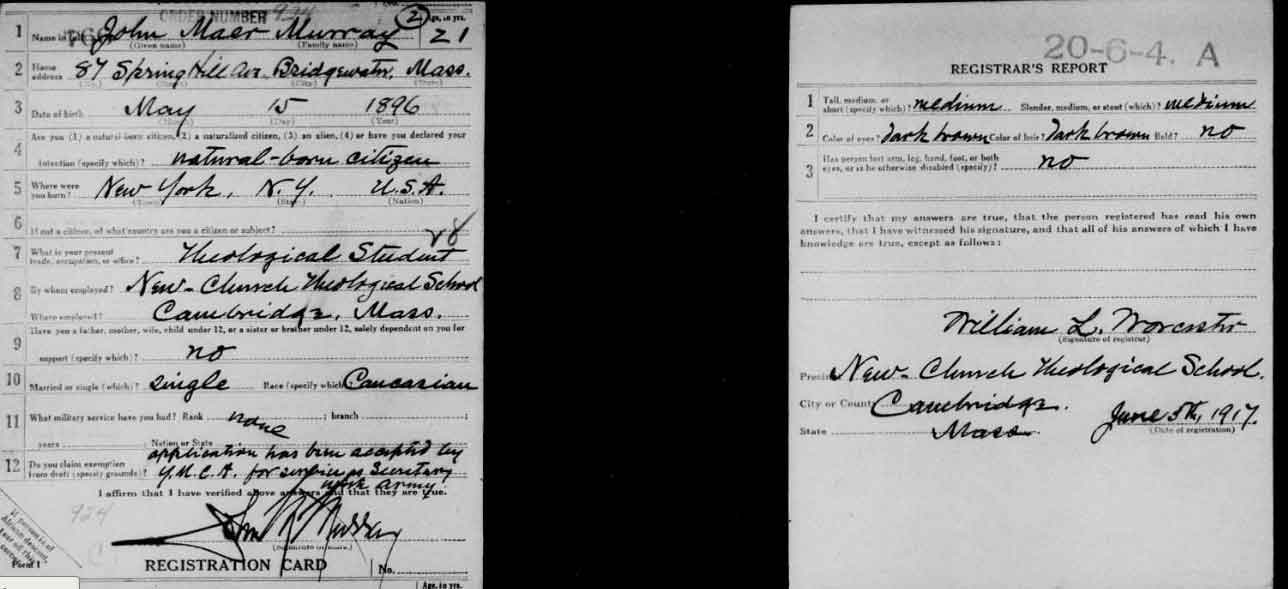 ORDER NUMBER 924
1 Name in full John Maer Murray (2) Age, in yrs. 21
(Given name) (Family name)
2 Home address 87 Spring Hill Ave. Bridgewater, Mass.
(No.) (Street) (City) (State)
3 Date of birth May 15 1896
(Month) (Day) (Year)
4 Are you (1) a natural-born citizen, (2) a naturalized citizen, (3) an alien, (4) or have you declared your
intention (specify which)? natural-born citizen
5 Where were you born? New York, N.Y. U.S.A.
(Town) (State) (Nation)
6 If not a citizen, of what country are you a citizen or subject?
7 What is your present trade, occupation, or office? Theological Student 28
8 By whom employed? New-Church Theological School
Where employed? Cambridge, Mass.
9 Have you a father, mother, wife, child under 12, or a sister or brother under 12, solely dependent on you for
support (specify which)? no
10 Married or single (which)? single Race (specify which) Caucasian
11 What military service have you had? Rank none ; branch ;
years ; Nation or State
12 Do you claim exemption from draft (specify grounds)? application has been accepted by
Y.M.C.A. for service as Secretary
work army.
I affirm that I have verified above answers and that they are true.
924
John M Murray
(Signature or mark)
If person is of
African descent,
tear off this
corner
Form 1 REGISTRATION CARD No.
Age, in yrs.
20-6-4. A
REGISTRAR'S REPORT
1 Tall, medium, or short (specify which)? medium Slender, medium, or stout (which)? medium
2 Color of eyes? Dark brown Color of hair? Dark brown Bald? no
3 Has person lost arm, leg, hand, foot, or both
eyes, or is he otherwise disabled (specify)? no
I certify that my answers are true, that the person registered has read his own
answers, that I have witnessed his signature, and that all of his answers of which I have
knowledge are true, except as follows:
William L. Worcester
(Signature of registrar)
Precinct New-Church Theological School.
City or County Cambridge.
State Mass. June 5th, 1917.
(Date of registration)